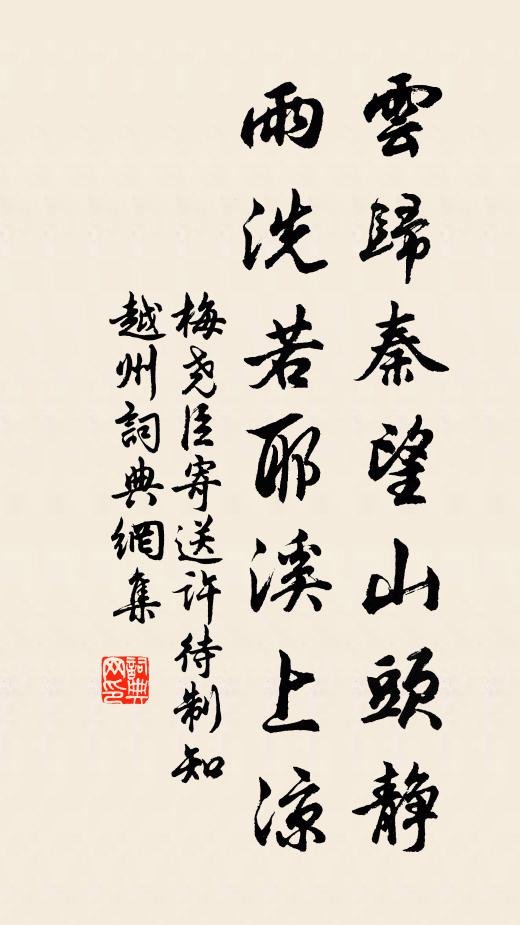 雲歸秦望山頭靜
雨洗若耶溪上涼
梅堯臣寄送許待制知
越州詞典網集
詞典网印